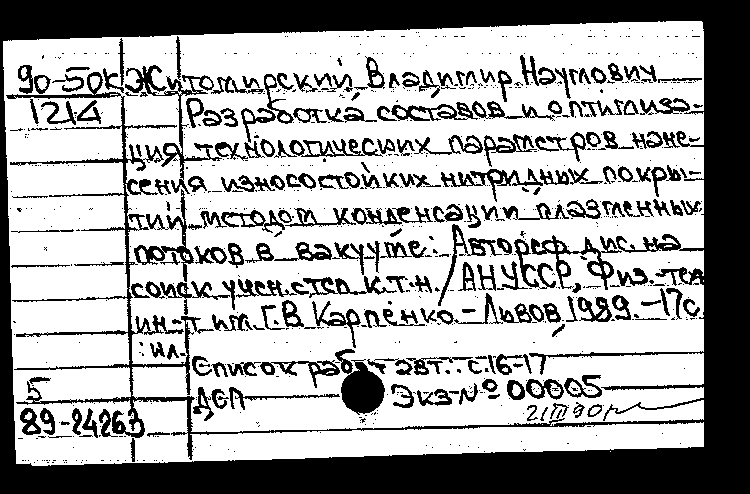 90-50К Житомирский Владимир Наумович
1214 Разработка составов и оптимиза-
ция технологических параметров нане-
сения износостойких нитридных покры-
тий методом конденсации плазменных
потоков в вакууме: Автореф. дис. на
соиск. учен. степ. к.т.н. / АН УССР, Физ.-тех.
ин-т им. Г.В. Карпенко. - Львов, 1989. - 17 с.
: ил.
Список работ авт.: с. 16-17
5 ДСП Экз. № 00005
89-24263 21 III 90 г